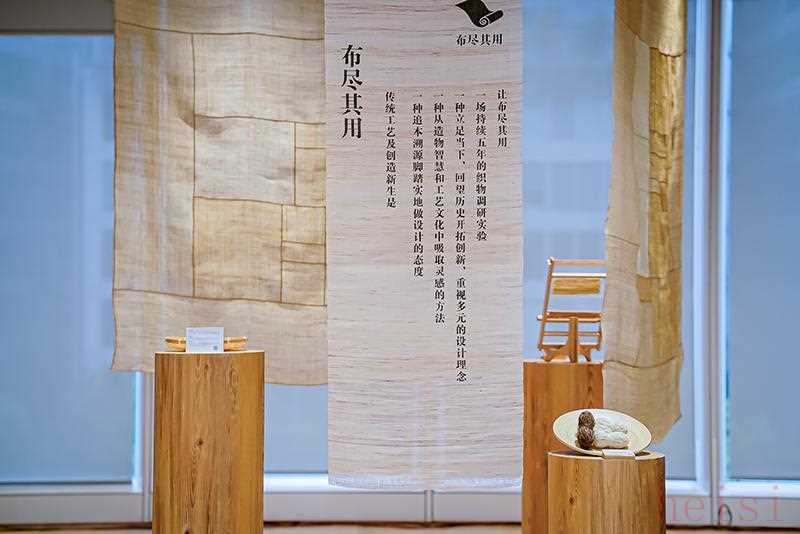 布尽其用
布尽其用
传统工艺及创造新生是
一种追本溯源脚踏实地做设计的态度
一种从造物智慧和工艺文化中吸取灵感的方法
一种立足当下、回望历史开拓创新、重视多元的设计理念
一场持续五年的织物调研实验
让布尽其用